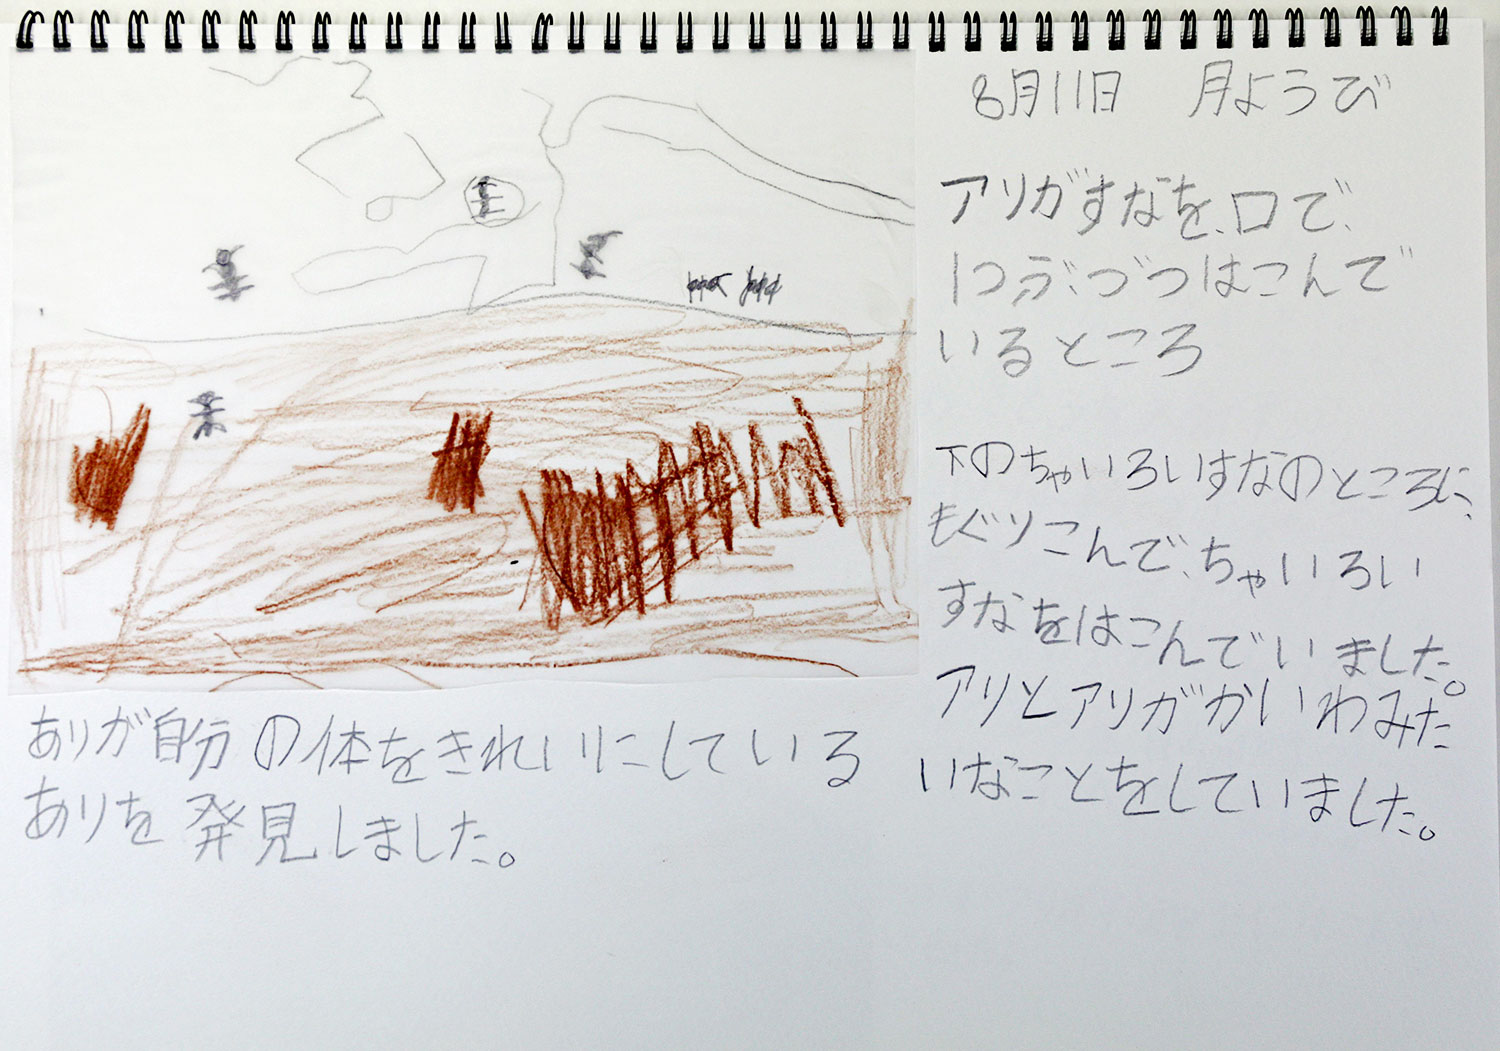 8月11日 月ようび
アリがすなを、口で、
1つぶ、づつはこんで
いるところ
下のちゃいろいすなのところに、
もぐりこんで、ちゃいろい
すなをはこんでいました。
アリとアリがかいわみた
いなことをしていました。
ありが自分の体をきれいにしている
ありを発見しました。